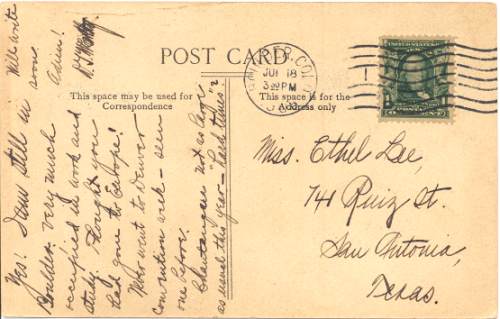 POST CARD
This space may be used for
Correspondence
This space is for the
Address only
BOULDER, COL.
JUL 18
3 PM
Yes! I am still in
Boulder very much
occupied in work and
study. Thought you
had gone to Europe!
Who went to Denver
convention week – seen
one before.
Chautauqua not as large
as usual this year – "hard times"?
Will write
soon.
Adios!
Miss. Ethel Lee,
741 Ruiz St.
San Antonia,
Texas.